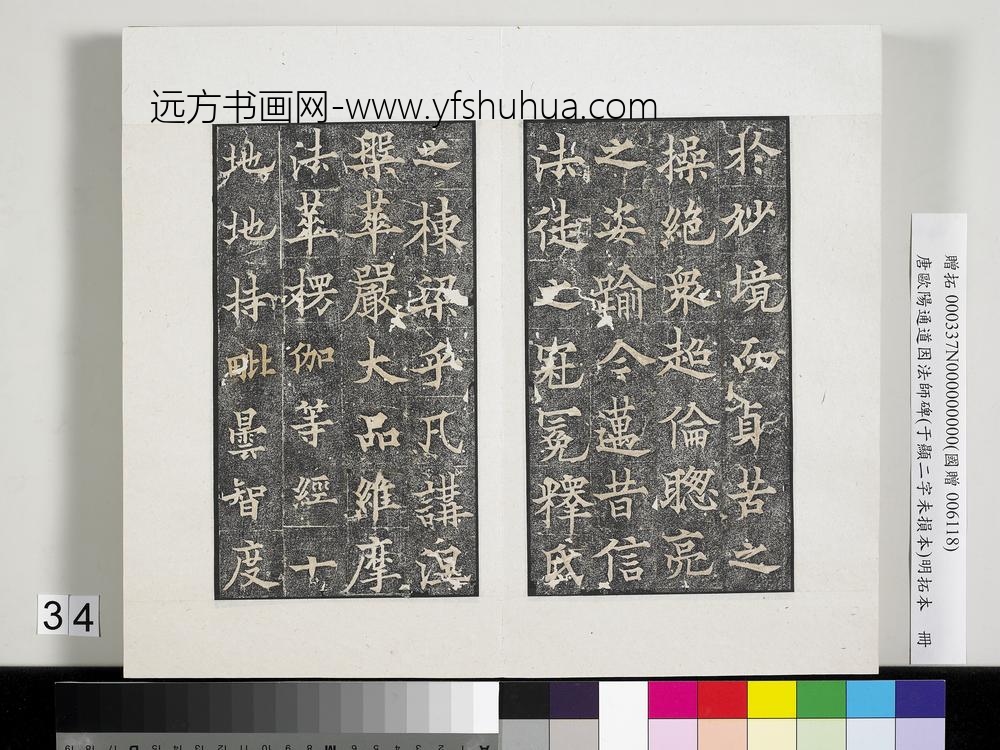 远方书画网-www.yfshuhua.com
於妙境而貞苦之
操絶衆超倫聦亮
之姿踰今邁昔信
法徒之冠冕釋氏
之棟梁乎凡講涅
槃華嚴大品維摩
法華楞伽等經十
地地持毗曇智度
贈拓 000337N000000000(國贈 006118)
唐歐陽通道因法師碑(于顯二字未損本)明拓本 冊
34